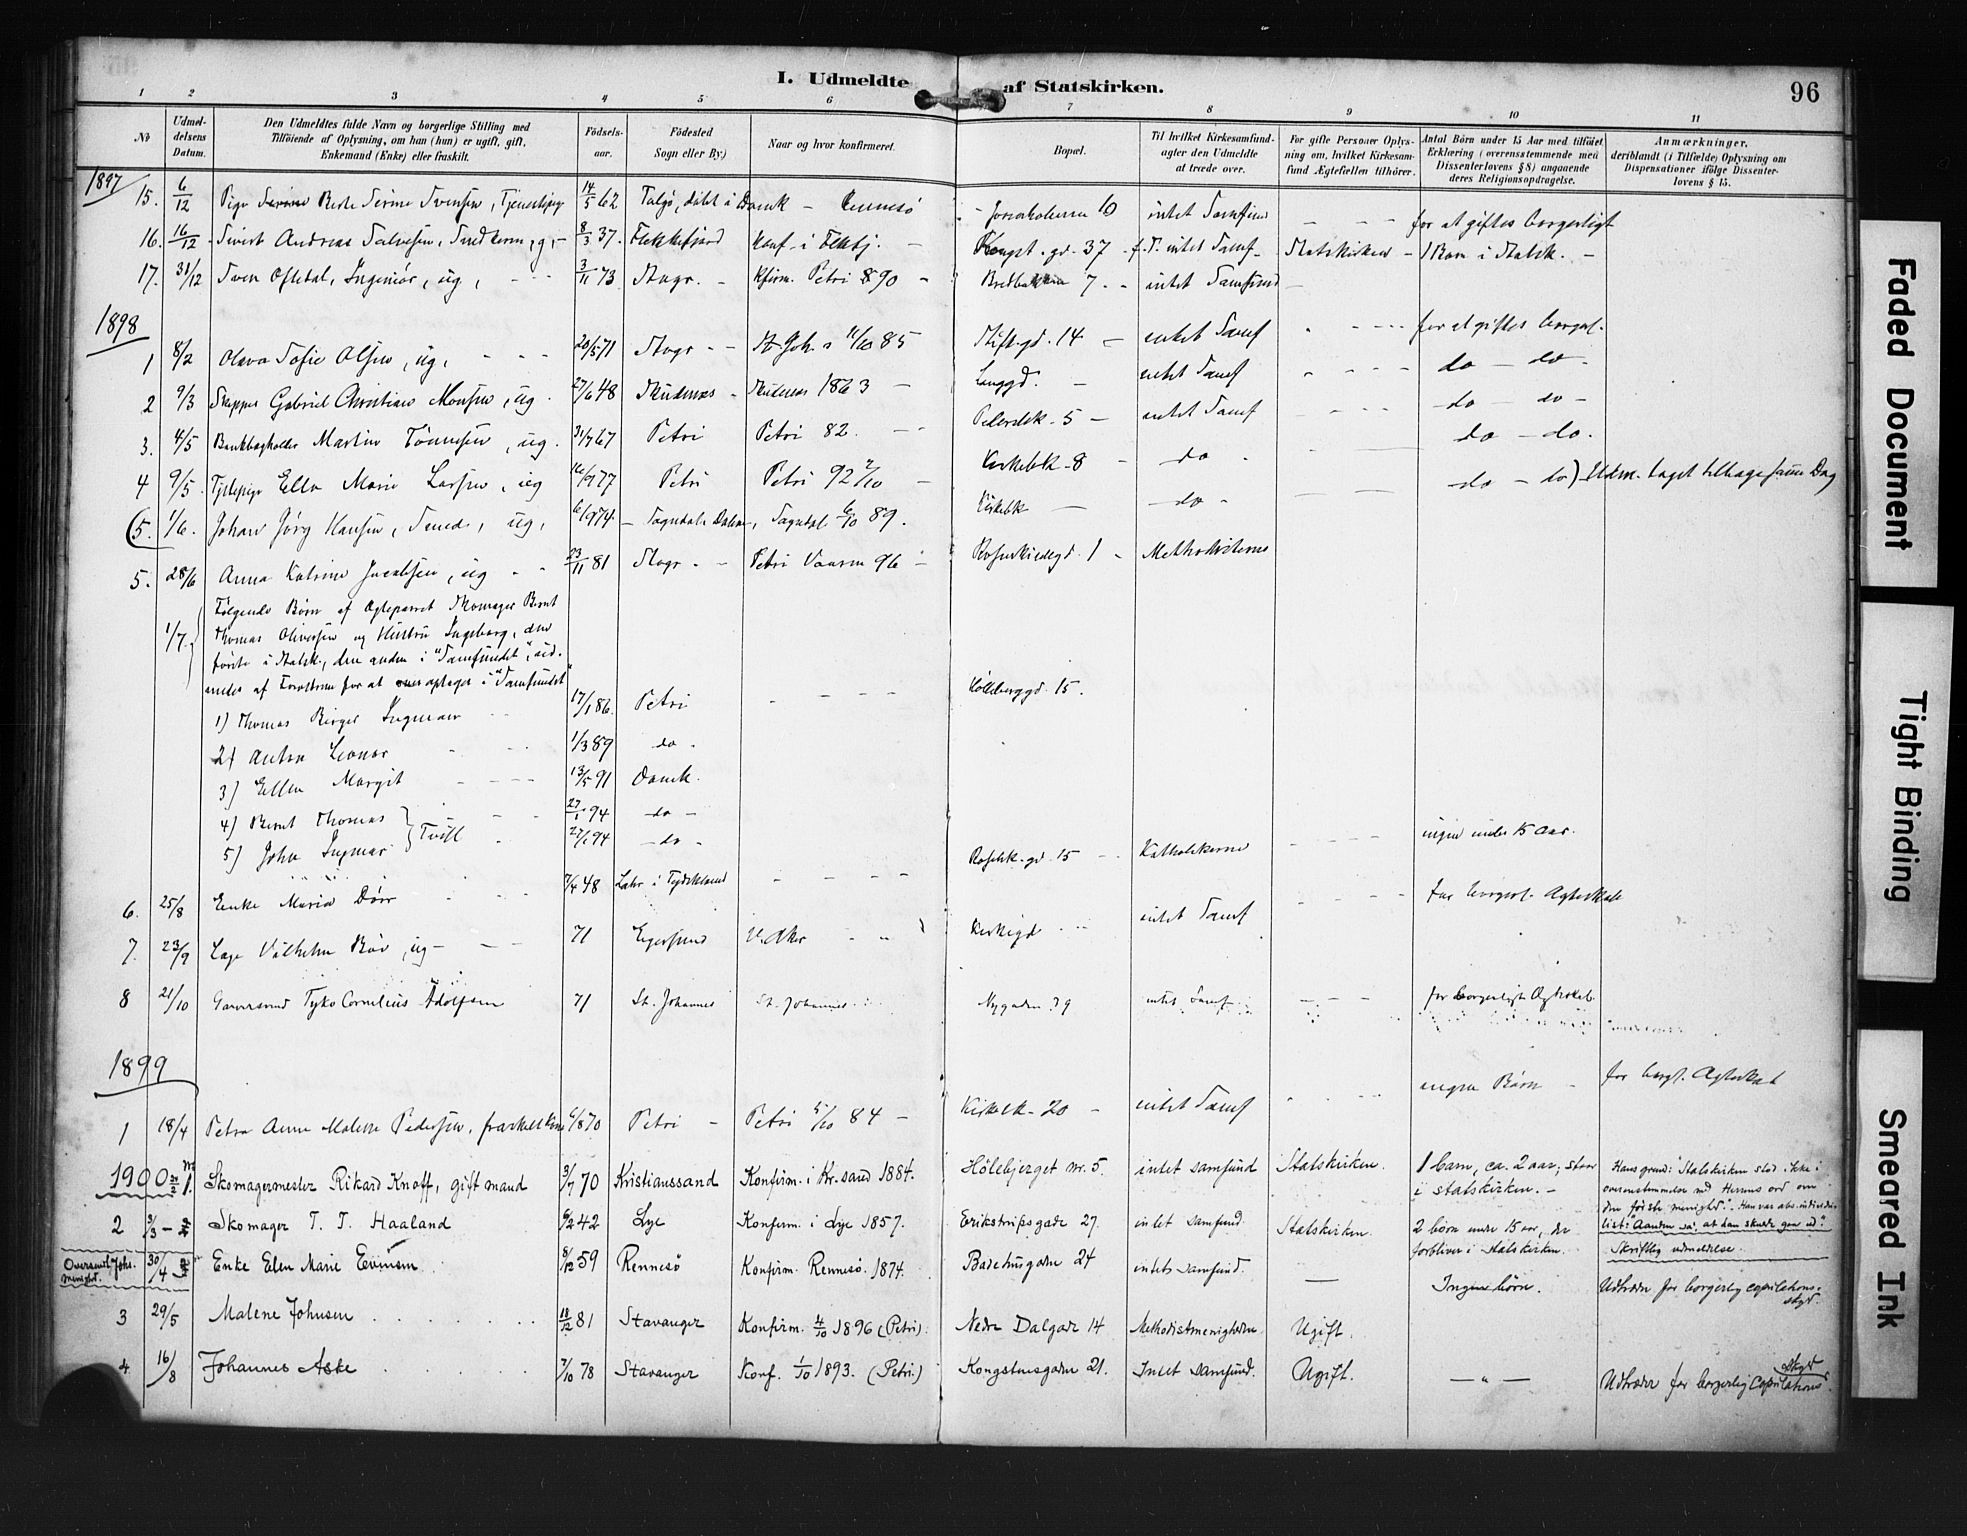 I. Udmeldte af Statskirken.
96
1 2 3 4 5 6 7 8 9 10 11
No
Udmeldelsens Datum.
Den Udmeldtes fulde Navn og borgerlige Stilling med Tilföiende af Oplysning, om han (hun) er ugift, gift, Enkemand (Enke) eller fraskilt.
Födsels-aar.
Födested Sogn eller By)
Naar og hvor konfirmeret.
Bopæl.
Til hvilket Kirkesamfund agter den Udmeldte at træde over.
For gifte Personer Oplysning om, hvilket Kirkesamfund Ægtefællen tilhörer.
Antal Börn under 15 Aar med tilföiet Erklæring (overensstemmende med Dissenterlovens § 8) angaaende deres Religionsopdragelse.
Anmærkninger, deriblandt (i Tilfælde) Oplysning om Dispensationer ifölge Dissenterlovens § 15.
1897
15. 6/12 Pige Berte Serine Svensen, 14/5 62 Talgö, döbt i Domk - Rennesö 10 intet Samfund - - - for at giftes borgerligt
16. 16/12 Sivert Andreas Salvesen, g, - 8/3 37. Flekkefjord Konf. i Flekfj. - Kongst. gd. 37 - intet Samf. Statskirken - 1 Barn i Statsk. -
17. 31/12 Sven Oftedal, Ingeniör, ug, - - 3/11 73 Stavgr. - Kfirm. Petri 890 - Bredbakken 7. - intet Samfund -
1898
1 8/2 Olava Sofie Olsen, ug, - - - 20/5 71 Stavgr - - St. Joh. 11/10 85 Stiftgd. 14 - intet Samf - - - for at giftes borgerl.
2 9/3 Skipper Gabriel Christian Monsen, ug. 27/6 48 Skudenes - Skudenes 1863 - Langgd. - intet Samf - - - do - do -
3. 4/5 Bankbogholder Martin Tönnesen, ug. 31/7 67 Petri Petri 82. - - Pedersbk. 5 - intet Samf - - - do - do -
4 9/5. Tjstepige Ella Marie Larsen, ug 77 Petri Petri 92 2/10 - Kirkebk. 8 - do - - do - do.
(5. 1/6. Johan Jörg Hansen, Smed, ug, 6/9 74. - Sogndal, Dalene, Sogndal 6/10 89. Kirkebk - do - - - do - do) Udm. taget tilbage samme Dag
5. 28/6 Anna Katrine Jacobsen, ug - - 23/11 81 Stavgr - - Petri Vaaren 96 - Rosenkildegd. 1 - Methodisterne
1/7. Fölgende Börn af Ægteparret Skomager Bernt
Thomas Oliversen og Hustru Ingeborg, den
förste i Statsk., den anden i "Samfundet", ud-
meldes af Forældrene for at optages i "Samfundet"
1) Thomas Birger Ingman - - 17/1 86. Petri - - - - Kölbberggd. 15.
2) Anton Leonar - - 1/3 89 do -
3) Ellen Margit - - - - 13/5 91 Domk.
4) Bernt Thomas } Tvill - - 27/1 94 do -
5) John Ingmar - 27/1 94 - do -
6. 25/8 Enke Maria Dörr - - - 7/4 48 Lahr i Tydskland - - - - Rosenk. gd. 15 - - Katholikerne - - - ingen under 15 Aar.
7. 23/9 Lage Vilhelm Böe, ug - - - 71 Egersund V. Aker - - Kirkegd - - intet Samf - - - for borgerl. Ægteskab
8 21/10 Garversvend Tyko Cornelius Adolfsen 71 St. Johannes St. Johannes Nygaden 39 intet Samf. - - - for borgerligt Ægteskab.
1899
1 18/4 Petra Anne Malene Pedersen, fraskilt Kone 6/8 70 Petri - Petri 5/10 84 - Kirkebk - 20 - intet Samf - - - ingen Börn - for borgl. Ægteskab
1900
1. Skomagermester Rikard Knoff, gift mand 3/7 70 Kristianssand Konfirm. i Kr.sand 1884. Hölebjerget nr. 5. intet samfund Statskirken. 1 barn, ca. 2 aar; staar i statskirken. - Hans grund: "Statskirken stod ikke i overensstemmelse med Herrens ord om den förste menighed". Han var abs. individualist: "Aanden sa', at han skulde gaa ud".
2 3/3 - Skomager T. T. Haaland 6/2 42 Lye Konfirm. i Lye 1857. Erikstrupsgade 27. intet samfund Statskirken. 2 börn under 15 aar, der forbliver i Statskirken. Skriftlig udmeldelse.
Oversendt Johs. menighed. 30/4 Enke Elen Marie Evensen 8/12 59 Rennesö Konfirm. Rennesö. 1874. Badehusgaden 24 intet samfund. - Ingen börn. Udtræder for borgerlig copulations-skyld.
3 29/5 Malene Johnsen . . . . . . 18/12 81 Stavanger Konfirm. 4/10 1896 (Petri). Nedre Dalgade 14 Methodistmenigheden Ugift.
4 16/8 Johannes Aske . . . . . 7/10 78 Stavanger Konf. 1/10 1893. (Petri.) Kongstensgaden 21. Intet samfund. Ugift. - " - Udtræder for borgerlig Copulations skyld
Faded Document
Tight Binding
Smeared Ink